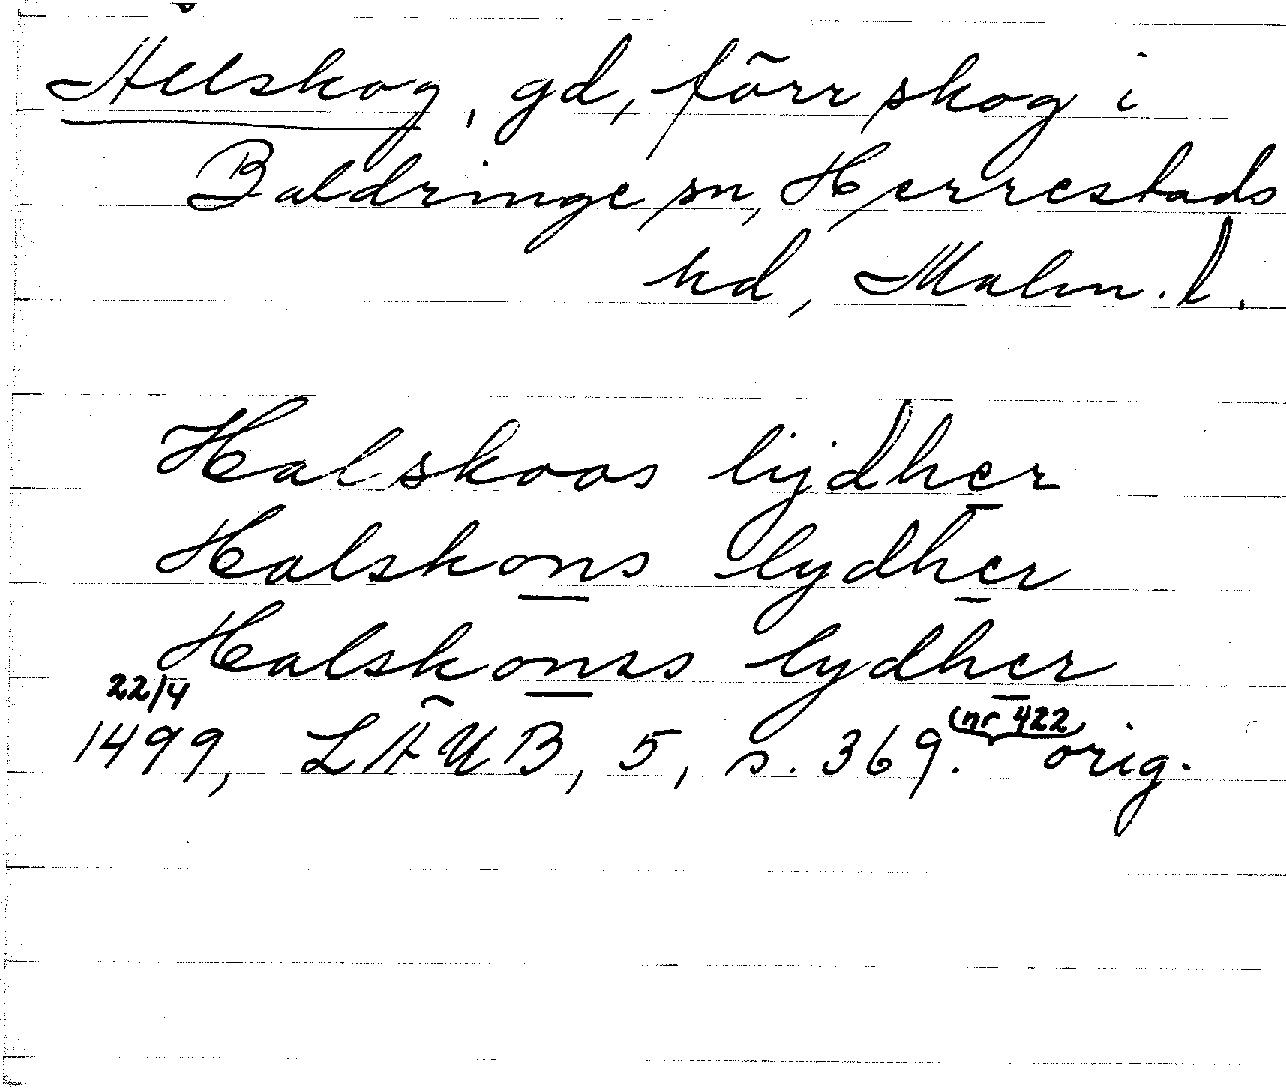 Allskog, gd, förr skog i
Baldringe sn, Herrestads
hd, Malm. l.
Halskoos lijdher
Halskons lydher
Halskonss lydher
22/4
1499, LÄUB, 5, s. 369. (nr 422) orig.